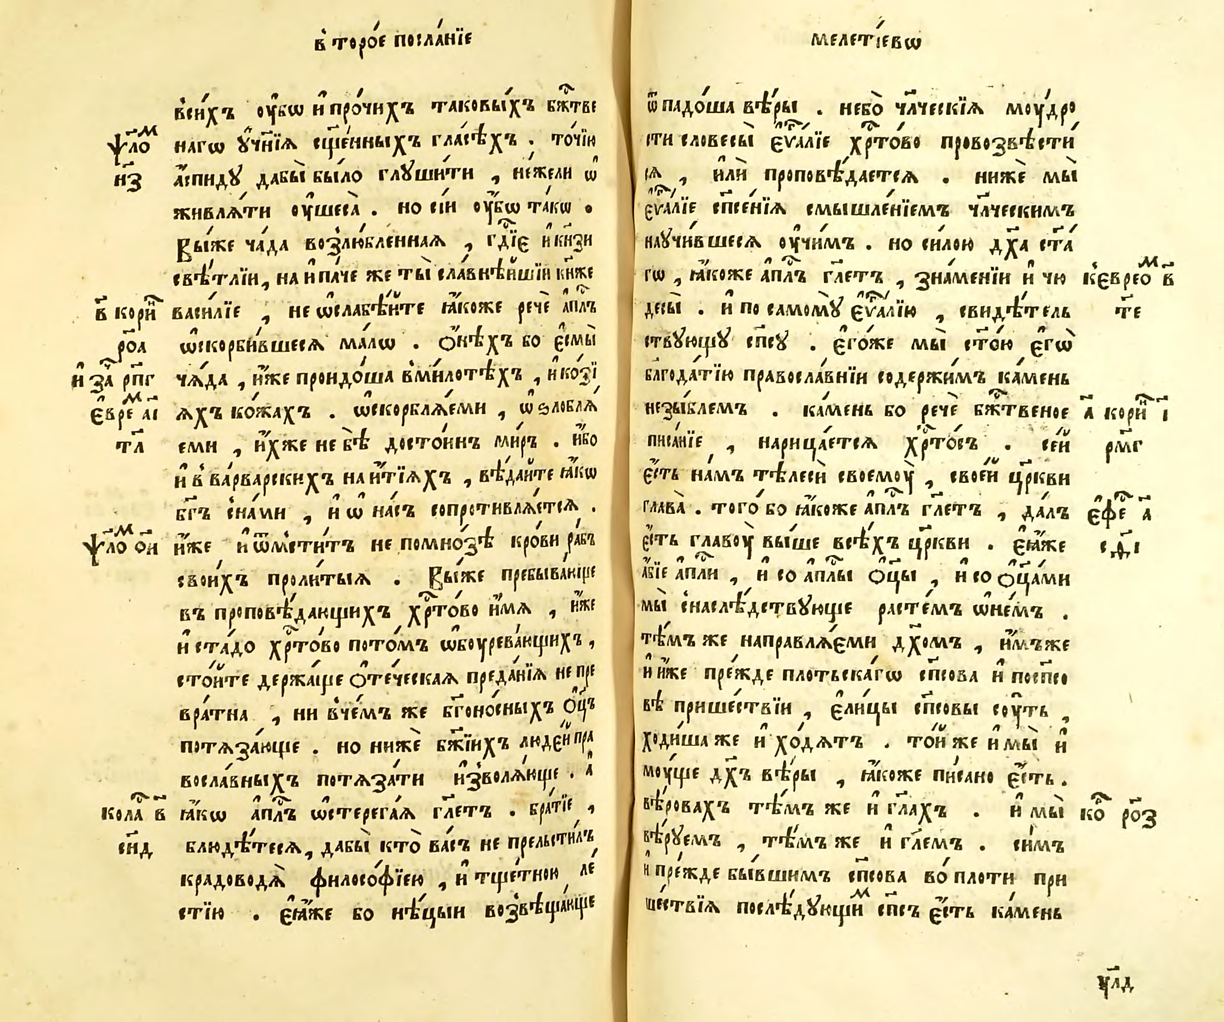 в҃ торо́е посла́нїе
всѝхъ ѹ҆́бѡ и҆ про́чихъ таковы́хъ бж҃тве
ѱло́м
нагѡ ѹ҆чн҃їѧ сщ҃е́нныхъ гласѣ́хъ . то́чїю
н҃з
а҆́спидꙋ дабы̀ бы́ло глꙋши́ти , не́жели ѡ҆
живлѧ́ти ѹ҆шеса̀ . но сїи ѹ҆́бѡ та́кѡ .
Вы́же ча́да возлю́бленнаѧ , гд҃їе и҆ кнѧзи
свѣ́тлїи, на и҆ па́че же ты̀ сла́внѣйшїи кн҃же
в҃ кори҆н
васи́лїе , не ѡ҆слабѣ́йте ꙗ҆́коже речѐ а҆пл҃ъ
ро҃а
ѡ҆скорби́вшесѧ ма́лѡ . Ѻ҆нѣ́хъ бо є҆смы̀
и҆ за҃ рп҃г
чѧ́да , и҆́же проидо́ша в̾ми́лотѣхъ , и҆ ко́зї
є҆вре аі҃
ѧхъ ко́жахъ . ѡ҆скорблѧ́еми , ѡ҆ѕлоблѧ́
тл҃а
еми , и҆́хже не бѣ̀ досто́инъ ми́ръ . и҆́бо
и҆ в̾ ва́рварскихъ наи҆́тїѧхъ , вѣ́дайте ꙗ҆́кѡ
бг҃ъ с̾на́ми , и҆ ѡ҆ на́съ сопротивлѧ́етсѧ .
ѱло́м о҃и
и҆́же и҆ ѿмсти́тъ не помно́зѣ кро́ви ра́бъ
свои́хъ проли́тыѧ . Вы́же пребыва́юще
въ проповѣ́дающихъ хр҃то́во и҆́мѧ , и҆́же
и҆ ста́до хр҃то́во пото́мъ ѡ҆боуре́вающихъ ,
сто́йте держа́ще ѻ҆те́ческаѧ преда́нїѧ не пре
вра́тна , ни в̾че́мъ же бг҃оно́сныхъ ѻ҆ц҃ъ
потѧза́юще . но нижѐ бж҃їихъ люде́й пра
восла́вныхъ потѧза́ти и҆зволѧ́юще . а҆
кола в҃
ꙗ҆́кѡ а҆пл҃ъ ѡ҆стерега́ѧ гл҃етъ . бра́тїе ,
сн҃д
блюдѣ́тесѧ, дабы̀ кто̀ ва́съ не прельсти́лъ
крадоводѧ̀ филосо́фїею , и҆ тще́тною ле́
стїю . є҆ѧ҆́же бо нѣ́цыи возвѣща́юще
меле́тїевѡ
ѿпадо́ша вѣ́ры . небо̀ чл҃ческїѧ моу́дро
сти словесы̀ є҆ѵа҃лїе хр҃то́во провозвѣсти́
сѧ , и҆лѝ проповѣ́даетсѧ . нижѐ мы̀
є҆ѵа҃лїе сп҃се́нїѧ смышле́нїемъ чл҃ческимъ
наꙋчи́вшесѧ ѹ҆чи́мъ . но си́лою дх҃а ст҃а́
гѡ , ꙗ҆́коже а҆пл҃ъ гл҃етъ , зна́менїи и҆ чю
к̾є҆вре́ом в҃
десы̀ . и҆ по самомꙋ є҆ѵа҃лїю , свидѣ́тель
т҃е
ствꙋющꙋ сп҃сꙋ . є҆го́же мы̀ ст҃о́ю є҆гѡ̀
благода́тїю правосла́внїи содержи́мъ ка́мень
незы́блемъ . ка́мень бо речѐ бж҃твеное
а҃ кори҆н і҃
писа́нїе , нарица́етсѧ хр҃то́съ . се́й
рм҃г
є҆́сть на́мъ тѣлесѝ своемоу̀ , свое́й цр҃кви
глава̀ . того̀ бо ꙗ҆́коже а҆пл҃ъ гл҃етъ , да́лъ
є҆фе а҃
є҆́сть главоу̀ вы́ше всѣ́хъ цр҃кви . є҆ѧ҆́же
а҆́бїе а҆пл҃и , и҆ со а҆пл҃ы ѻ҆ц҃ы , и҆ со ѻ҆ц҃а́ми
мы̀ с̾наслѣ́дствꙋюще расте́мъ ѡ҆не́мъ .
тѣ́мъ же направлѧ́еми дх҃омъ , и҆́мъже
и҆ и҆́же пре́жде плотьска́гѡ сп҃сова и҆ посп҃со
вѣ̀ прише́ствїи , є҆ли́цы сп҃со́вы соу́ть ,
ходи́ша же и҆ хо́дѧтъ . то́й же и҆ мы̀ и҆
моу́ще дх҃ъ вѣ́ры , ꙗ҆́коже пи́сано є҆́сть .
вѣ́ровахъ тѣ́мъ же и҆ гл҃ахъ . и҆ мы̀
ко҃ ро҃з
вѣ́рꙋемъ , тѣ́мъ же и҆ гл҃емъ . си́мъ
и҆ пре́жде бы́вшимъ сп҃сова во́ плоти при
ше́ствїѧ послѣ́дꙋющим сп҃съ є҆́сть ка́мень
ѵ҃лд